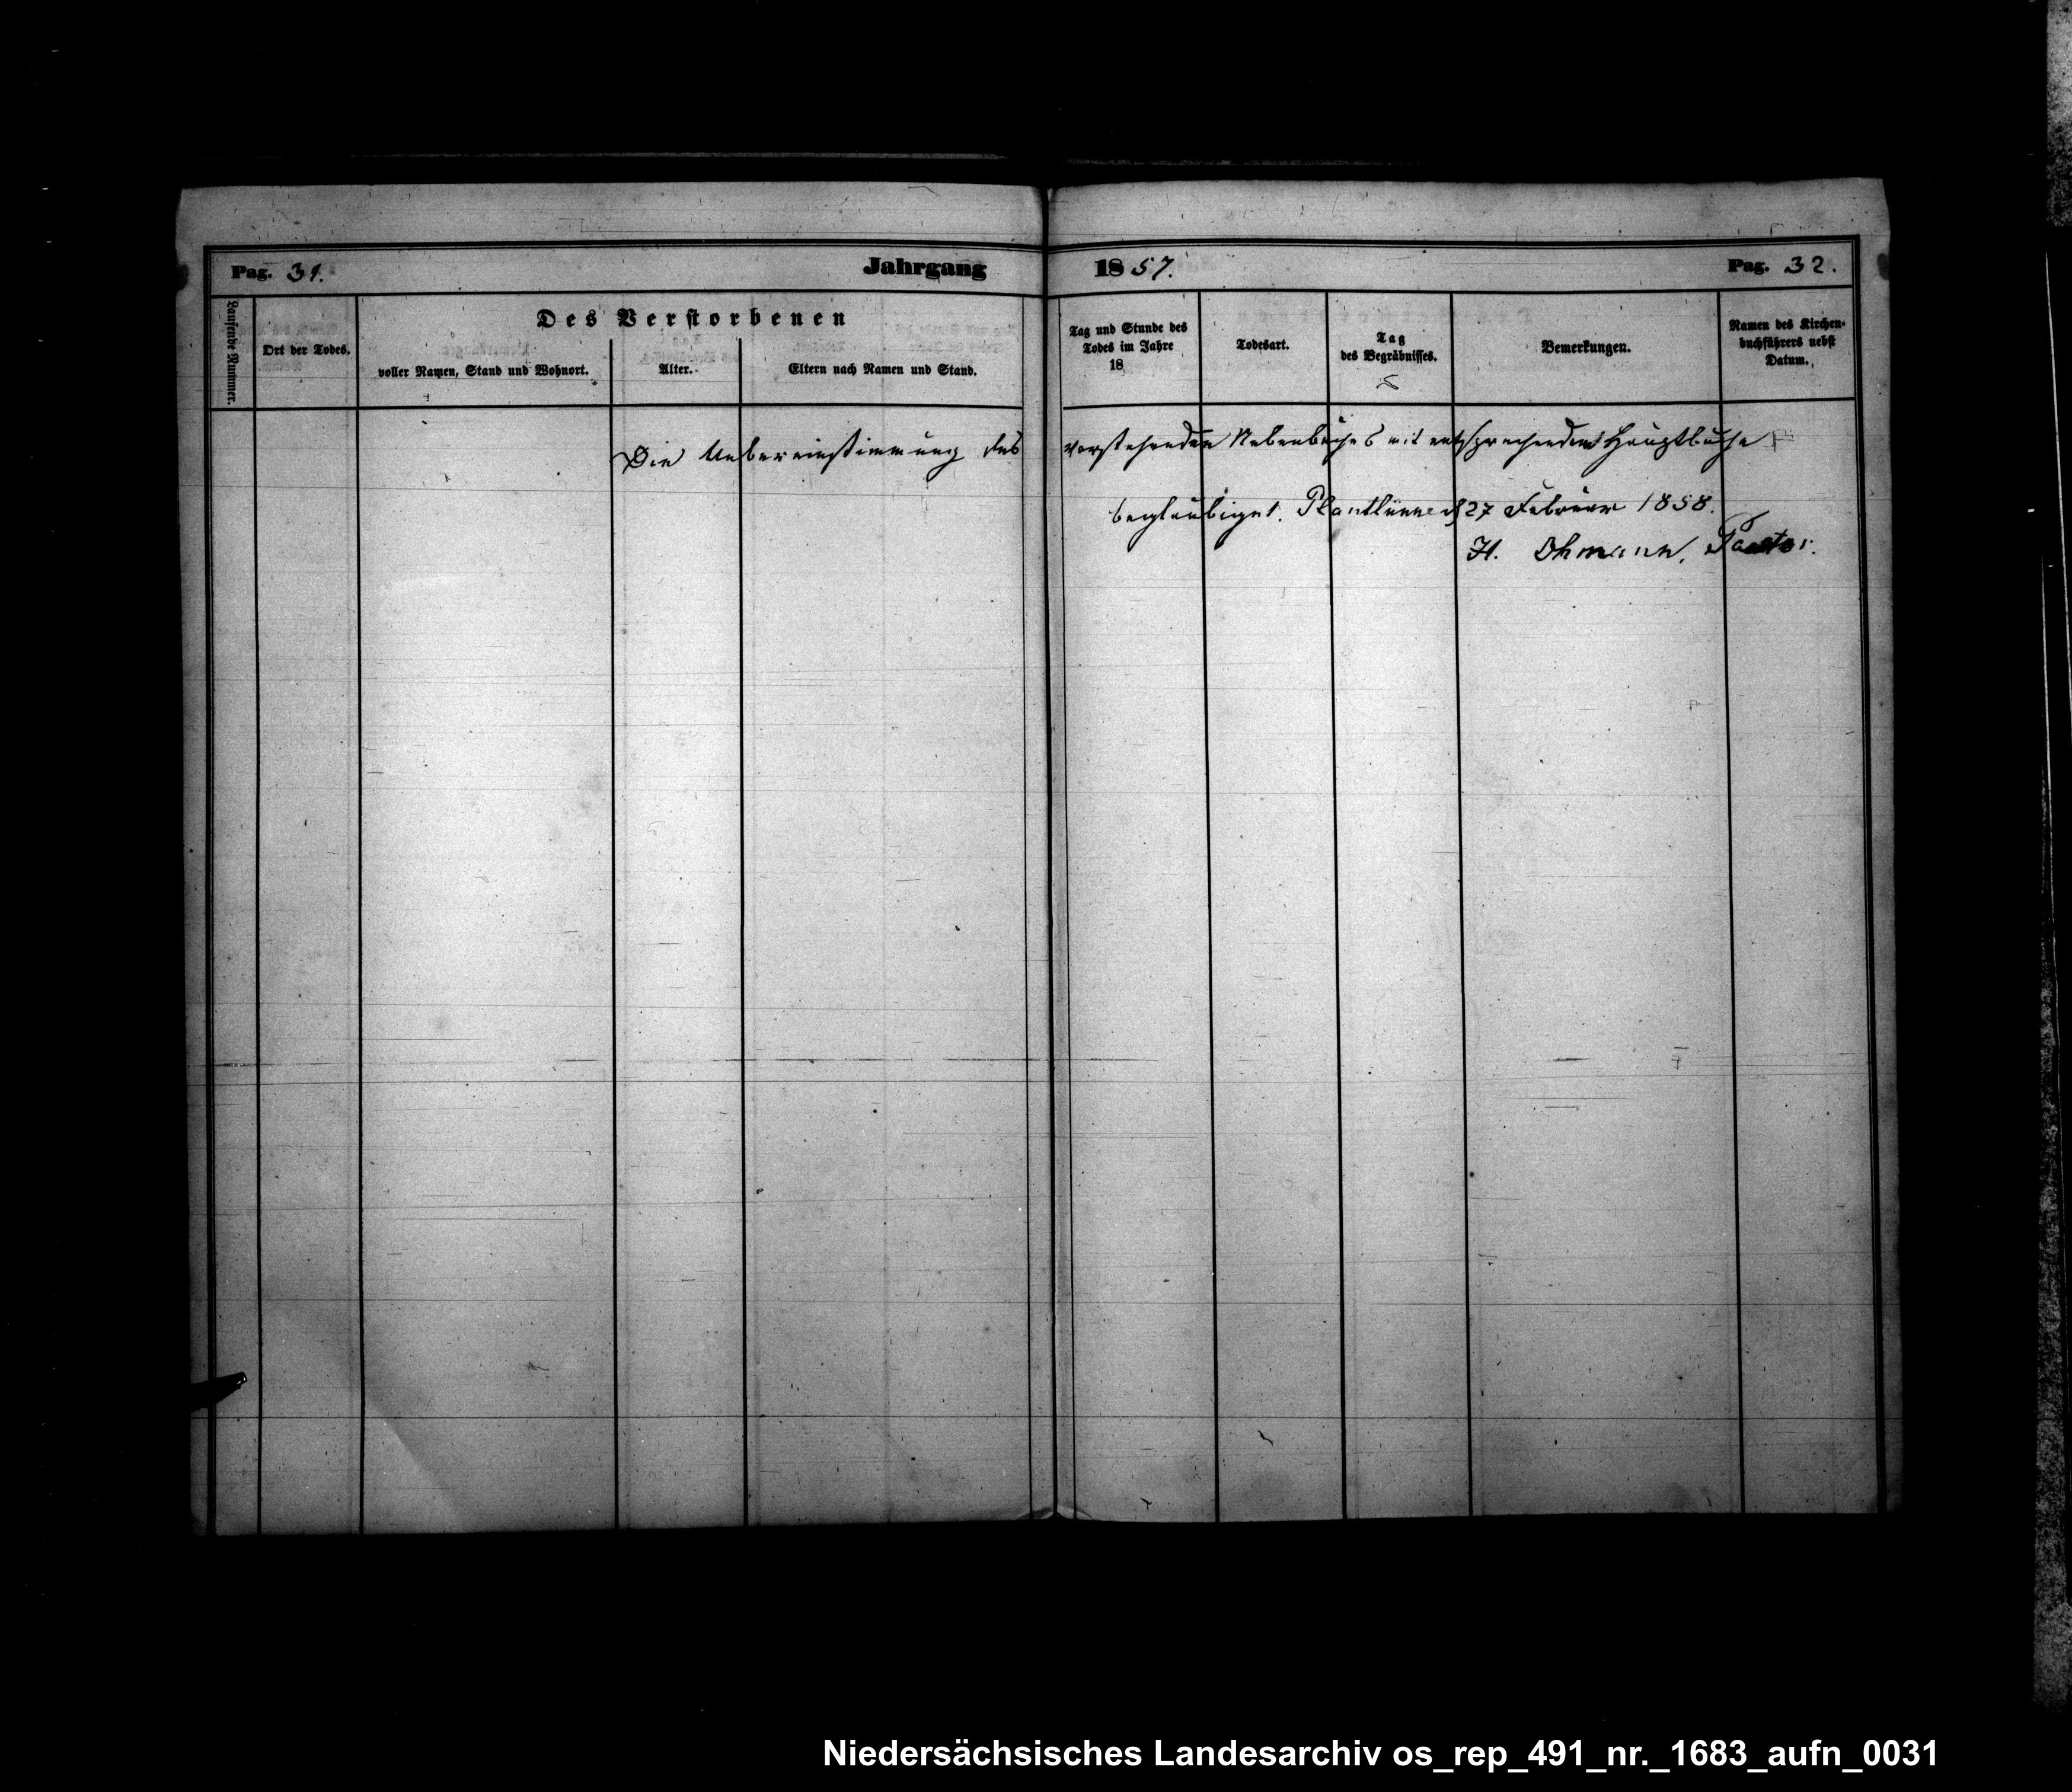 Pag. 31. Jahrgang 1857. Pag. 32.
Laufende Nummer.
Ort der Todes.
Des Verstorbenen
voller Namen, Stand und Wohnort.
Alter.
Eltern nach Namen und Stand.
Tag und Stunde des
Todes im Jahre
18
Todesart.
Tag
des Begräbnisses.
Bemerkungen.
Namen des Kirchen-
buchführers nebst
Datum.
Die Uebereinstimmung des vorstehenden Nebenbuches mit entsprechendem Hauptbuche
beglaubiget. Plantlünne d 27 Februar 1858.
H. Ohmann, Pastor.
Niedersächsisches Landesarchiv os_rep_491_nr._1683_aufn_0031